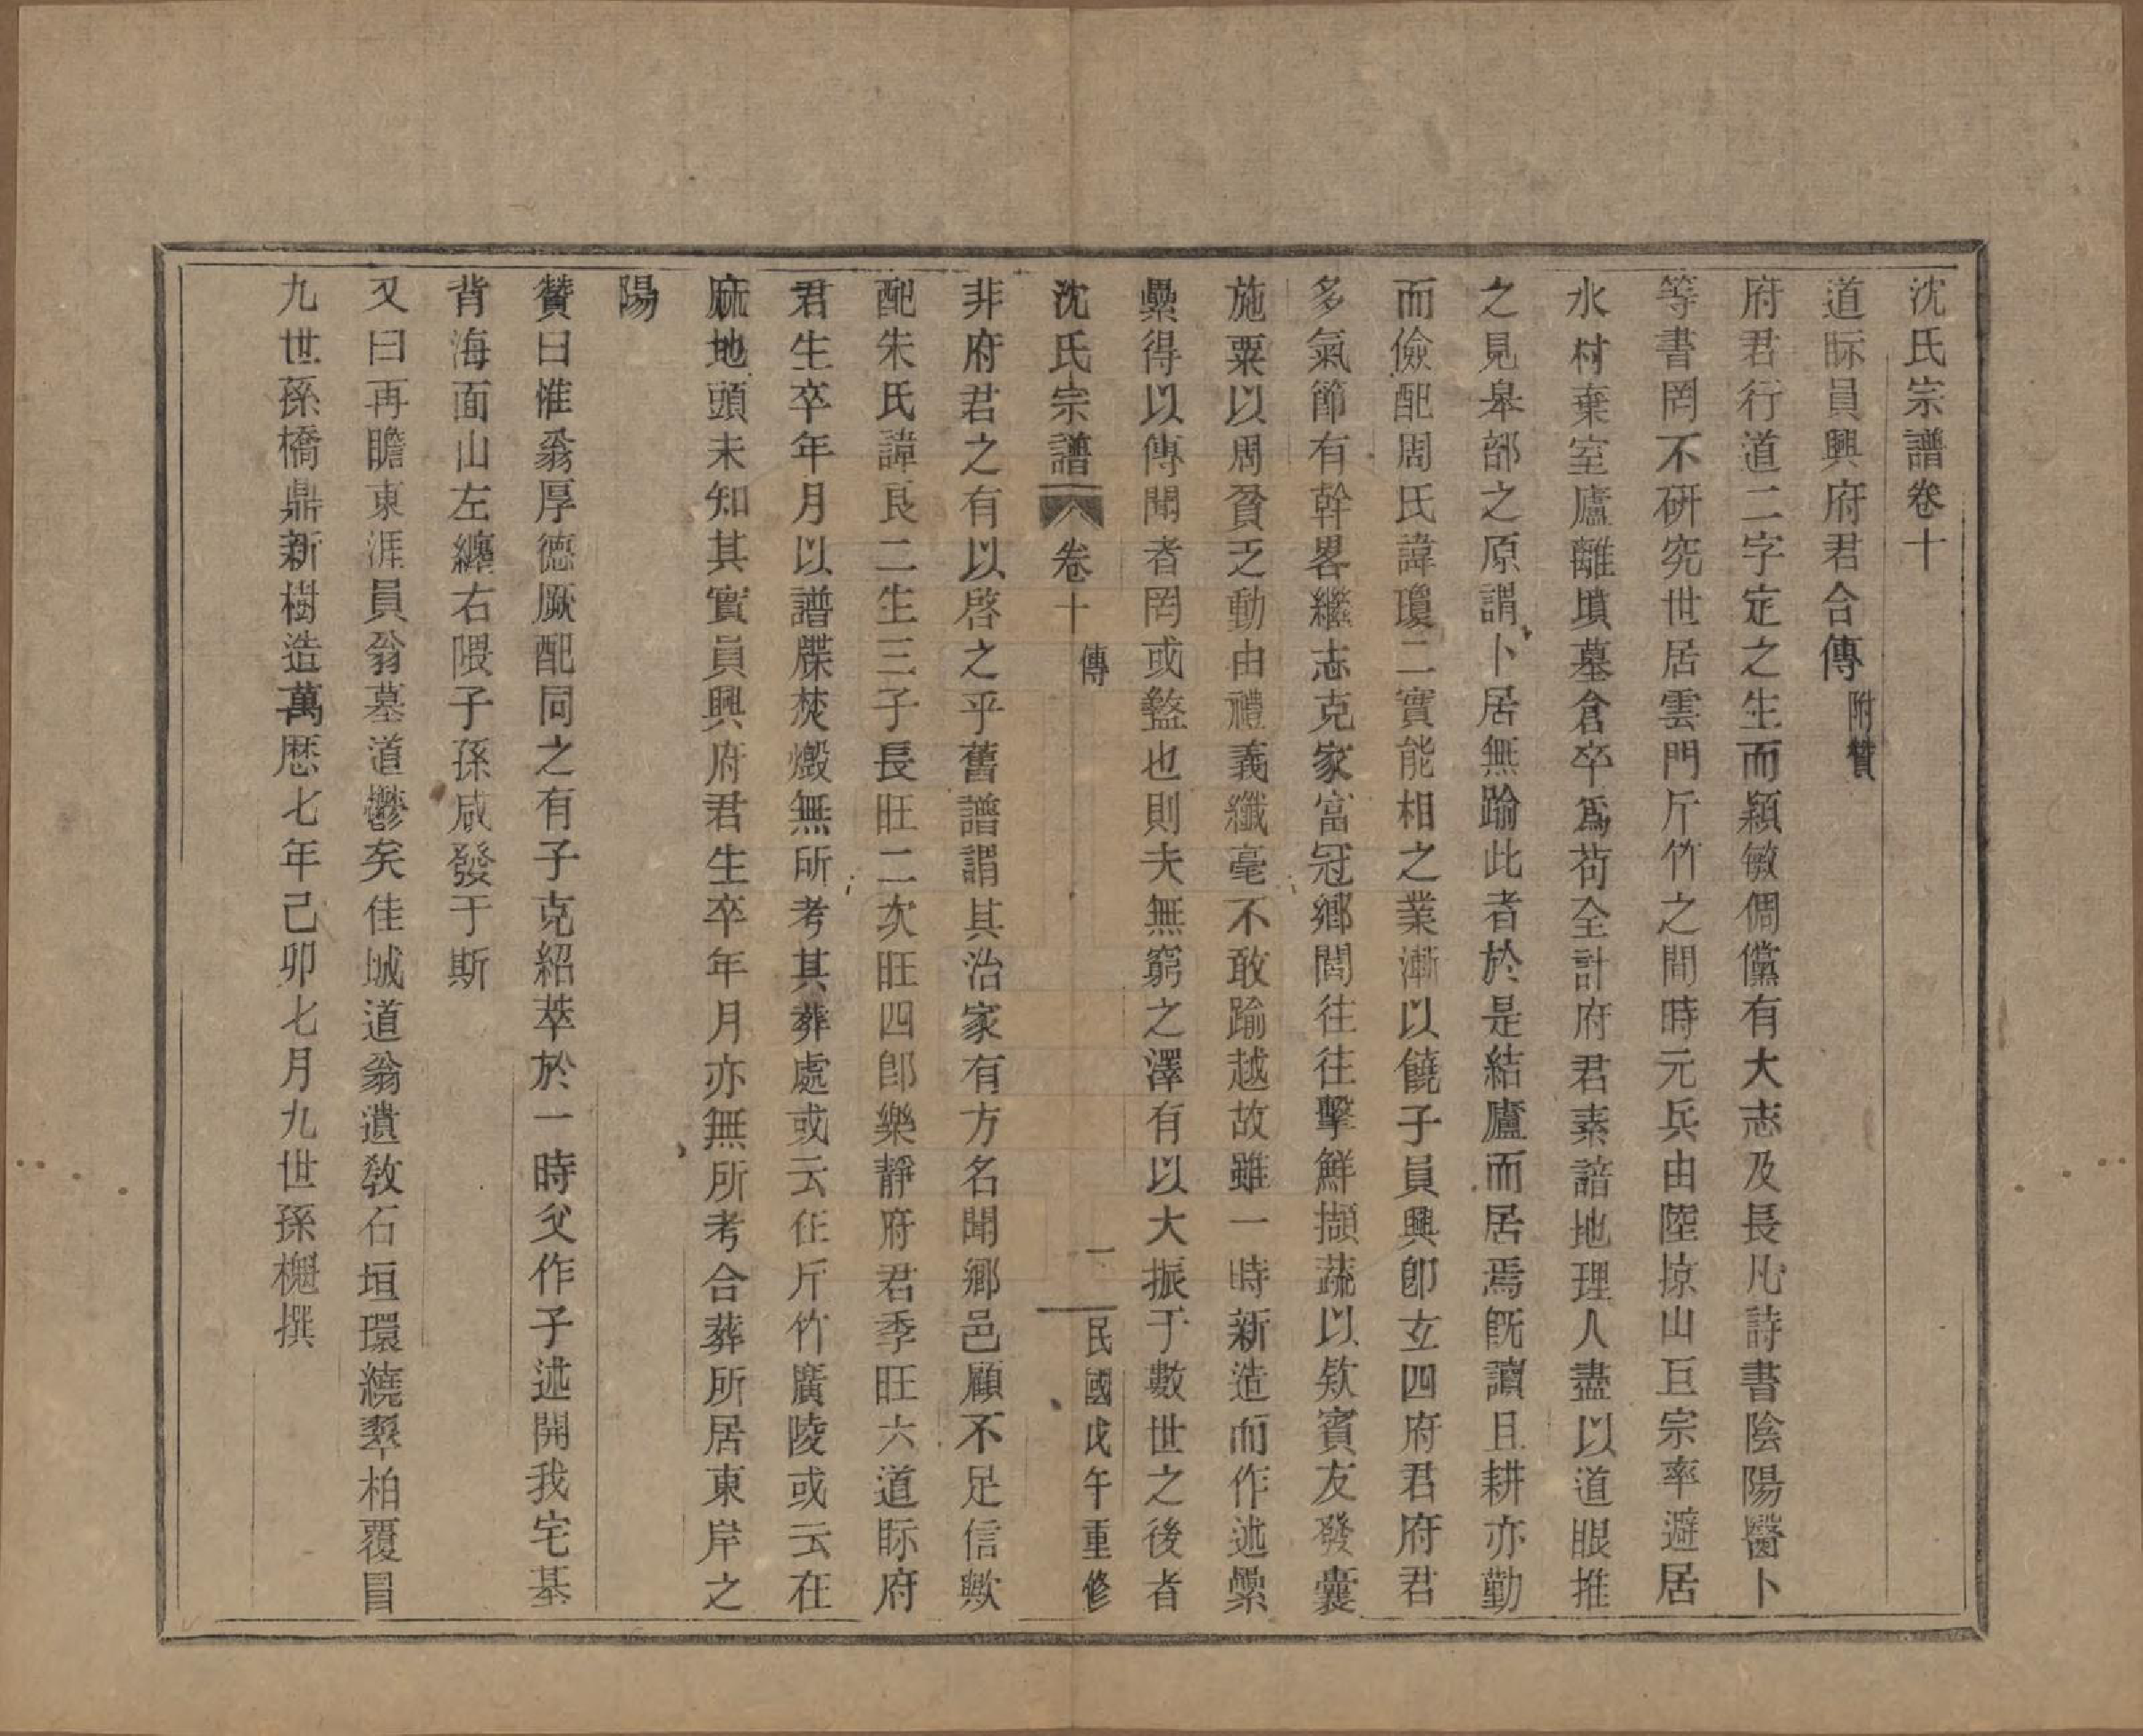 沈氏宗譜卷十
道昑員興府君合傳附贊
府君行道二字定之生而穎敏倜儻有大志及長凡詩書陰陽醫卜
等書罔不研究世居雲門斤竹之間時元兵由陸掠山巨宗率避居
水村棄室廬離墳墓倉卒爲苟全計府君素諳地理人盡以道眼推
之見皋部之原謂卜居無踰此者於是結廬而居焉旣讀且耕亦勤
而儉配周氏諱瓊二實能相之業漸以饒子員興卽玄四府君府君
多氣節有幹畧繼志克家富冠鄉閭往往擊鮮擷蔬以欵賓友發囊
施粟以周貧乏動由禮義纖毫不敢踰越故雖一時新造而作述纍
纍得以傳聞者罔或盭也則夫無窮之澤有以大振于數世之後者
沈氏宗譜 卷十 傳 一 民國戊午重修
非府君之有以啓之乎舊譜謂其治家有方名聞鄉邑顧不足信歟
配朱氏諱良二生三子長旺二次旺四卽樂靜府君季旺六道昑府
君生卒年月以譜牒焚燬無所考其葬處或云在斤竹廣陵或云在
庥地頭未知其實員興府君生卒年月亦無所考合葬所居東岸之
陽
贊曰惟翁厚德厥配同之有子克紹萃於一時父作子述開我宅基
背海面山左纏右隈子孫咸發于斯
又曰再瞻東涯員翁墓道鬱矣佳城道翁遺敎石垣環繞翠柏覆冒
九世孫橋鼎新樹造萬厯七年己卯七月九世孫櫆撰